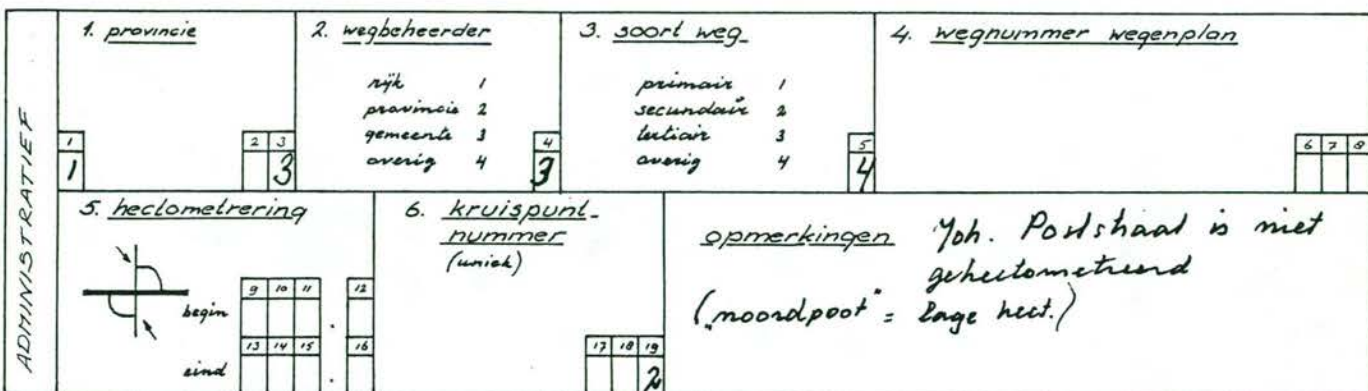 ADMINISTRATIEF
1. provincie
1
1
2 3
3
2. wegbeheerder
rijk 1
provincie 2
gemeente 3
overig 4
4
3
3. soort weg
primair 1
secundair 2
tertiair 3
overig 4
5
4
4. wegnummer wegenplan
6 7 8
5. hectometrering
begin
9 10 11 . 12
eind
13 14 15 . 16
6. kruispunt-
nummer
(uniek)
17 18 19
2
opmerkingen Joh. Poststraat is niet
gehectometreerd
("noordpoot" = lage hect.)